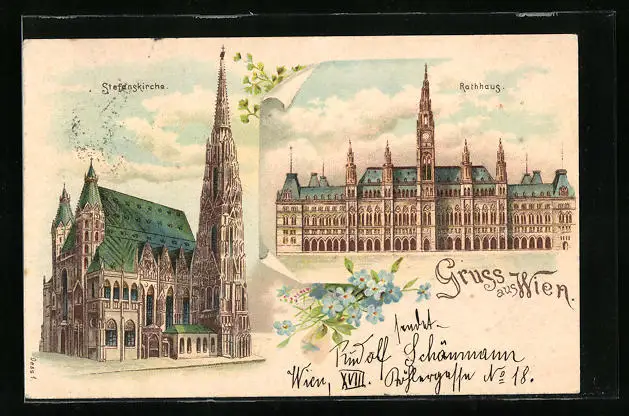 Stefanskirche.
Rathhaus.
Gruss aus Wien.
sendet
Rudolf Schönmann
Wien, XVIII. Köhlergasse No 18.